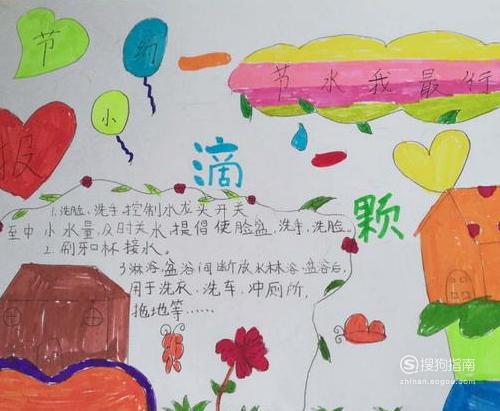 节
约
一
节水我最行
小
报
滴
一
颗
1.洗脸、洗手控制水龙头开关
至中小水量,及时关水提倡使脸盆,洗手,洗脸。
2.刷牙和杯接水。
3淋浴.盆浴间断放水林浴.盆浴后,
用于洗衣、洗车、冲厕所,
拖地等……
S 搜狗指南
zhinan.sogou.com